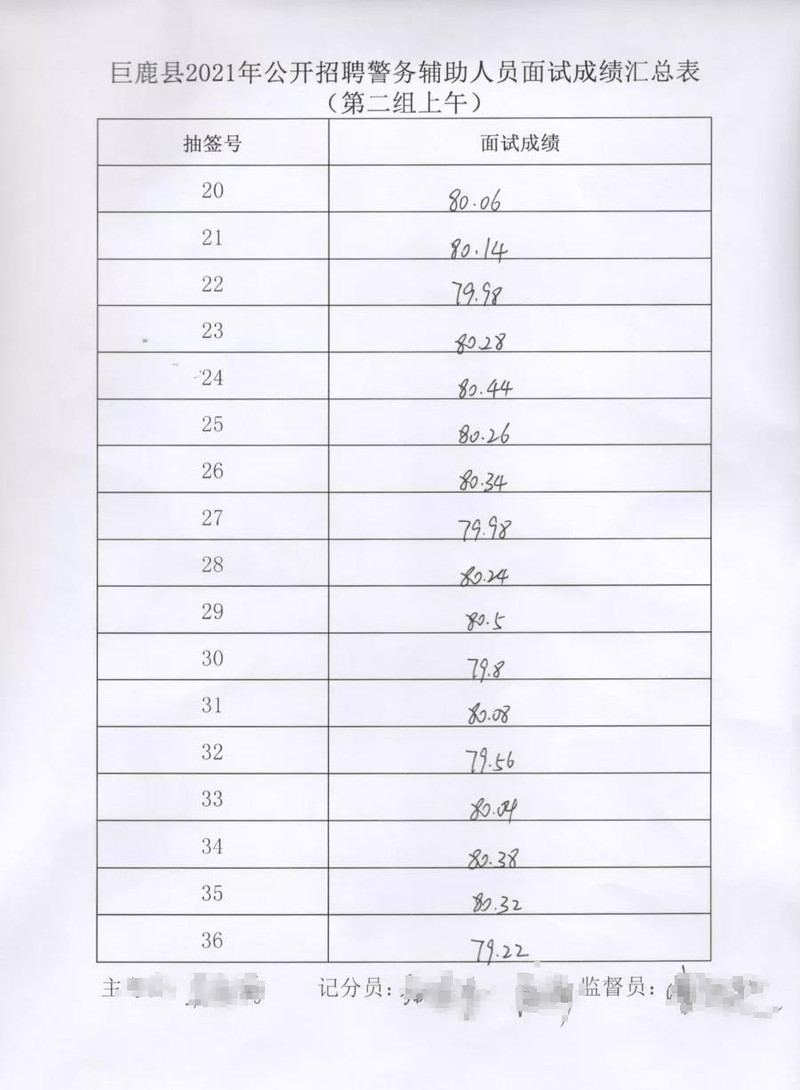 巨鹿县2021年公开招聘警务辅助人员面试成绩汇总表
（第二组上午）
抽签号 面试成绩
20 80.06
21 80.14
22 79.98
23 80.28
24 80.44
25 80.26
26 80.34
27 79.98
28 80.24
29 80.5
30 79.8
31 80.08
32 79.56
33 80.04
34 80.38
35 80.32
36 79.22
主 记分员： 监督员：